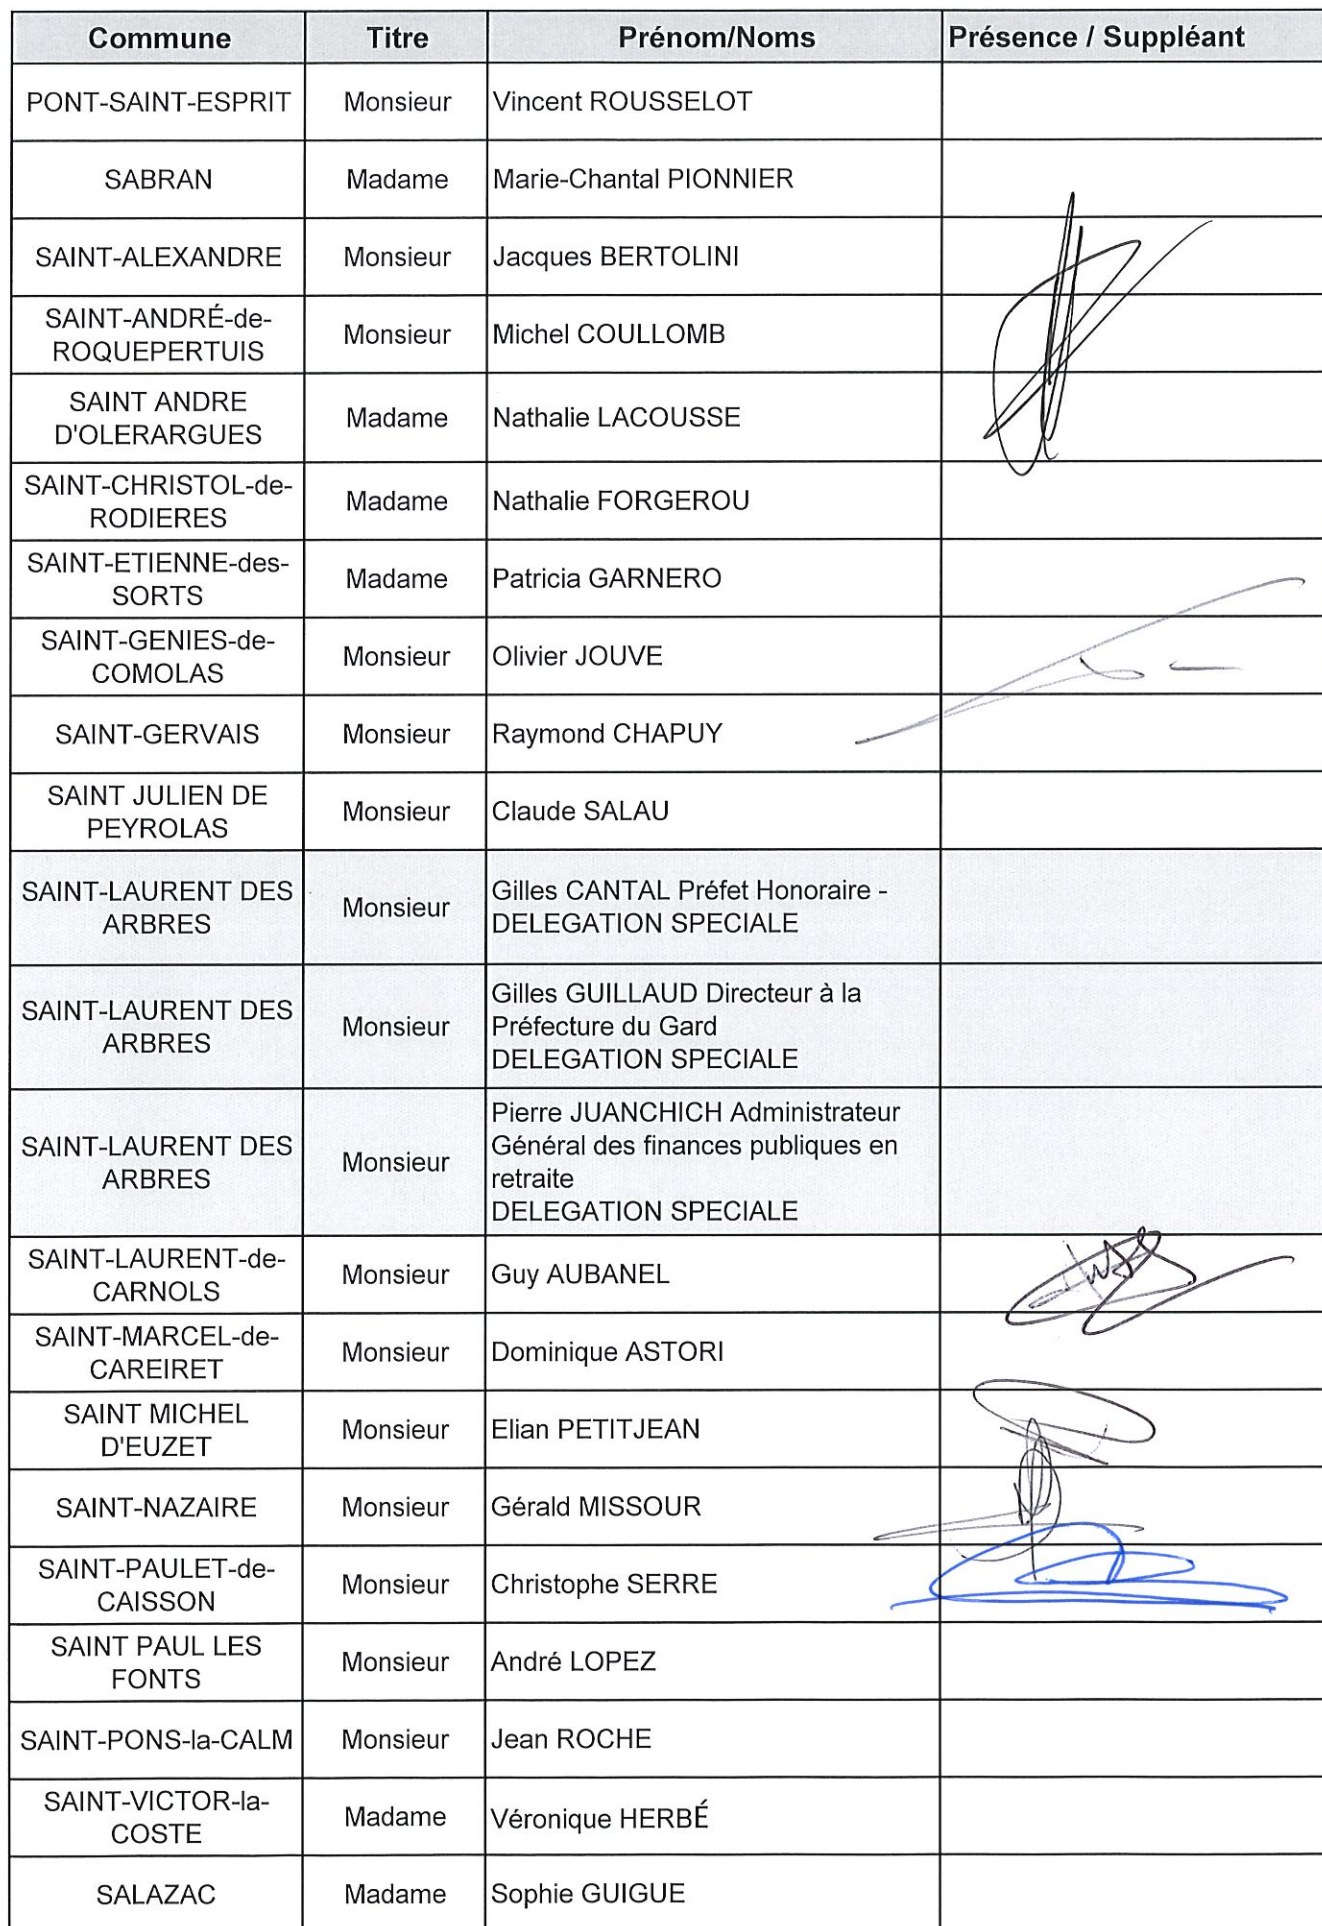 Commune Titre Prénom/Noms Présence / Suppléant
PONT-SAINT-ESPRIT Monsieur Vincent ROUSSELOT
SABRAN Madame Marie-Chantal PIONNIER
SAINT-ALEXANDRE Monsieur Jacques BERTOLINI
SAINT-ANDRÉ-de-
ROQUEPERTUIS Monsieur Michel COULLOMB
SAINT ANDRE
D'OLERARGUES Madame Nathalie LACOUSSE
SAINT-CHRISTOL-de-
RODIERES Madame Nathalie FORGEROU
SAINT-ETIENNE-des-
SORTS Madame Patricia GARNERO
SAINT-GENIES-de-
COMOLAS Monsieur Olivier JOUVE
SAINT-GERVAIS Monsieur Raymond CHAPUY
SAINT JULIEN DE
PEYROLAS Monsieur Claude SALAU
SAINT-LAURENT DES
ARBRES Monsieur Gilles CANTAL Préfet Honoraire -
DELEGATION SPECIALE
SAINT-LAURENT DES
ARBRES Monsieur Gilles GUILLAUD Directeur à la
Préfecture du Gard
DELEGATION SPECIALE
SAINT-LAURENT DES
ARBRES Monsieur Pierre JUANCHICH Administrateur
Général des finances publiques en
retraite
DELEGATION SPECIALE
SAINT-LAURENT-de-
CARNOLS Monsieur Guy AUBANEL
SAINT-MARCEL-de-
CAREIRET Monsieur Dominique ASTORI
SAINT MICHEL
D'EUZET Monsieur Elian PETITJEAN
SAINT-NAZAIRE Monsieur Gérald MISSOUR
SAINT-PAULET-de-
CAISSON Monsieur Christophe SERRE
SAINT PAUL LES
FONTS Monsieur André LOPEZ
SAINT-PONS-la-CALM Monsieur Jean ROCHE
SAINT-VICTOR-la-
COSTE Madame Véronique HERBÉ
SALAZAC Madame Sophie GUIGUE